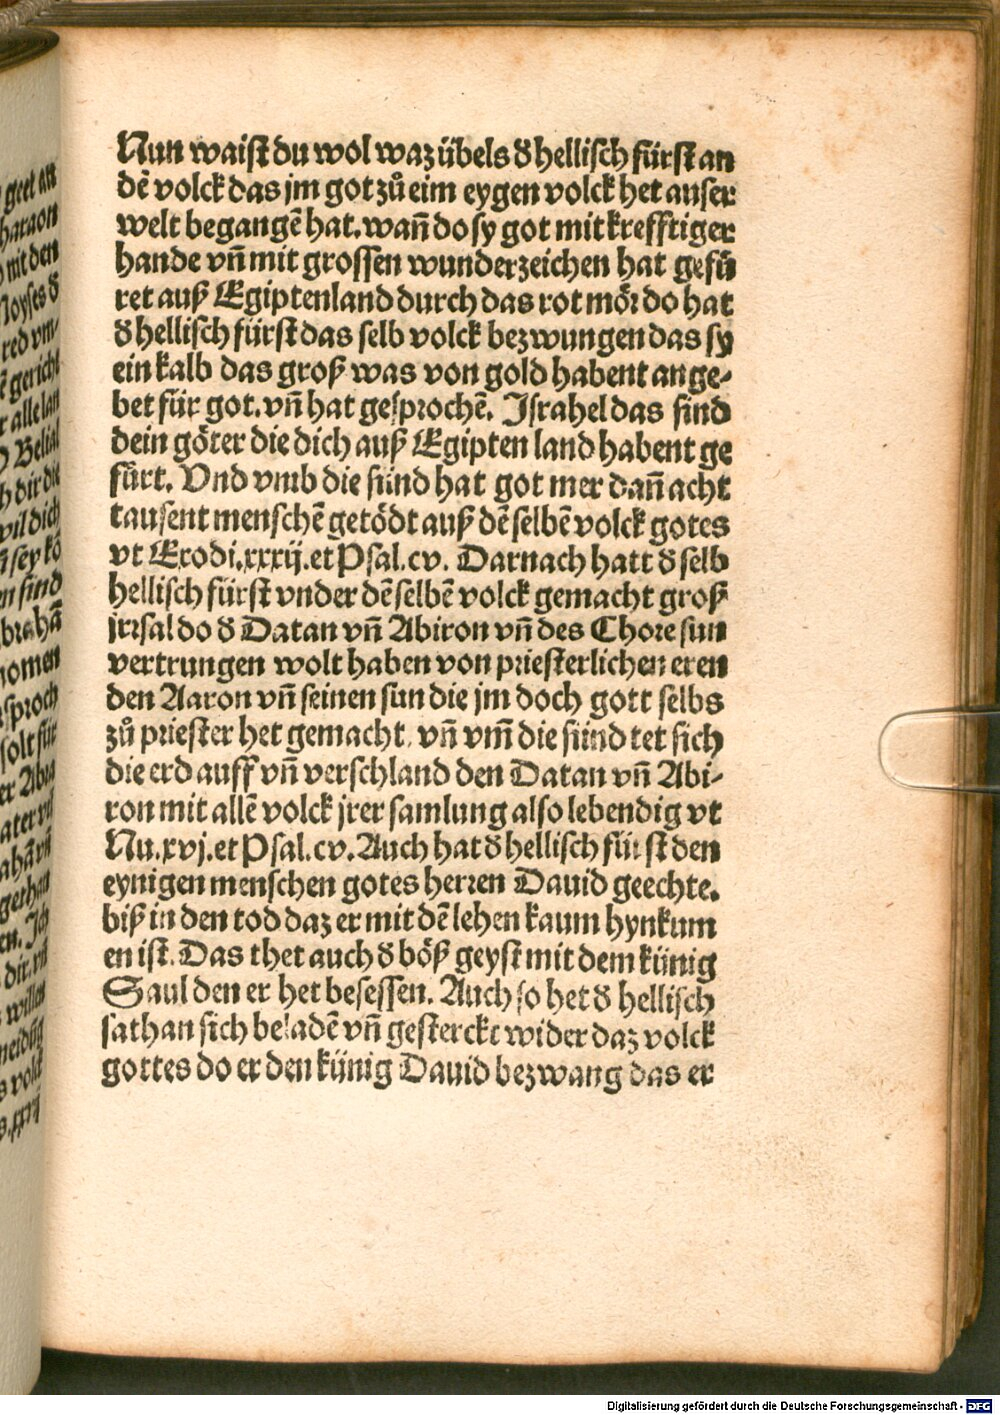 Nun waist du wol waz übels ð hellisch fürst an
dē volck das jm got zů eim eygen volck het auſer
welt begangē hat. wañ do sy got mit krefftiger
hande vñ mit grossen wunderzeichen hat gefü
ret auß Egiptenland durch das rot mör do hat
ð hellisch fürst das selb volck bezwungen das sy
ein kalb das groß was von gold habent ange⸗
bet für got. vñ hat gesprochē. Israhel das sind
dein göter die dich auß Egipten land habent ge
fürt. Vnd vmb die sünd hat got mer dañ acht
tausent menschē getödt auß dē selbē volck gotes
vt Exodi.xxxij.et Psal.cv. Darnach hatt ð selb
hellisch fürst vnder dē selbē volck gemacht groß
jrrsal do ð Datan vñ Abiron vñ des Chore sun
vertrungen wolt haben von priesterlichen eren
den Aaron vñ seinen sun die jm doch gott selbs
zů priester het gemacht. vñ vm̄ die sünd tet sich
die erd auff vñ verschland den Datan vñ Abi⸗
ron mit allē volck jrer samlung also lebendig vt
Nu.xvj.et Psal.cv. Auch hat ð hellisch fürst den
eynigen menschen gotes herren Dauid geechte.
biß in den tod daz er mit dē lehen kaum hynkum
en ist. Das thet auch ð böß geyst mit dem künig
Saul den er het besessen. Auch so het ð hellisch
sathan sich beladē vñ gesterckt wider daz volck
gottes do er den künig Dauid bezwang das er
geet an
haraon
mit den
Moyses ð
red vm⸗
gericht
alle lan
Belial
dir die
wil dich
sey kō
sind
men
sproch
solt für
er Abra
ater vñ
gethan
en. Ich
dir. vñ
willen
volck
.xxij
Digitalisierung gefördert durch die Deutsche Forschungsgemeinschaft - DFG